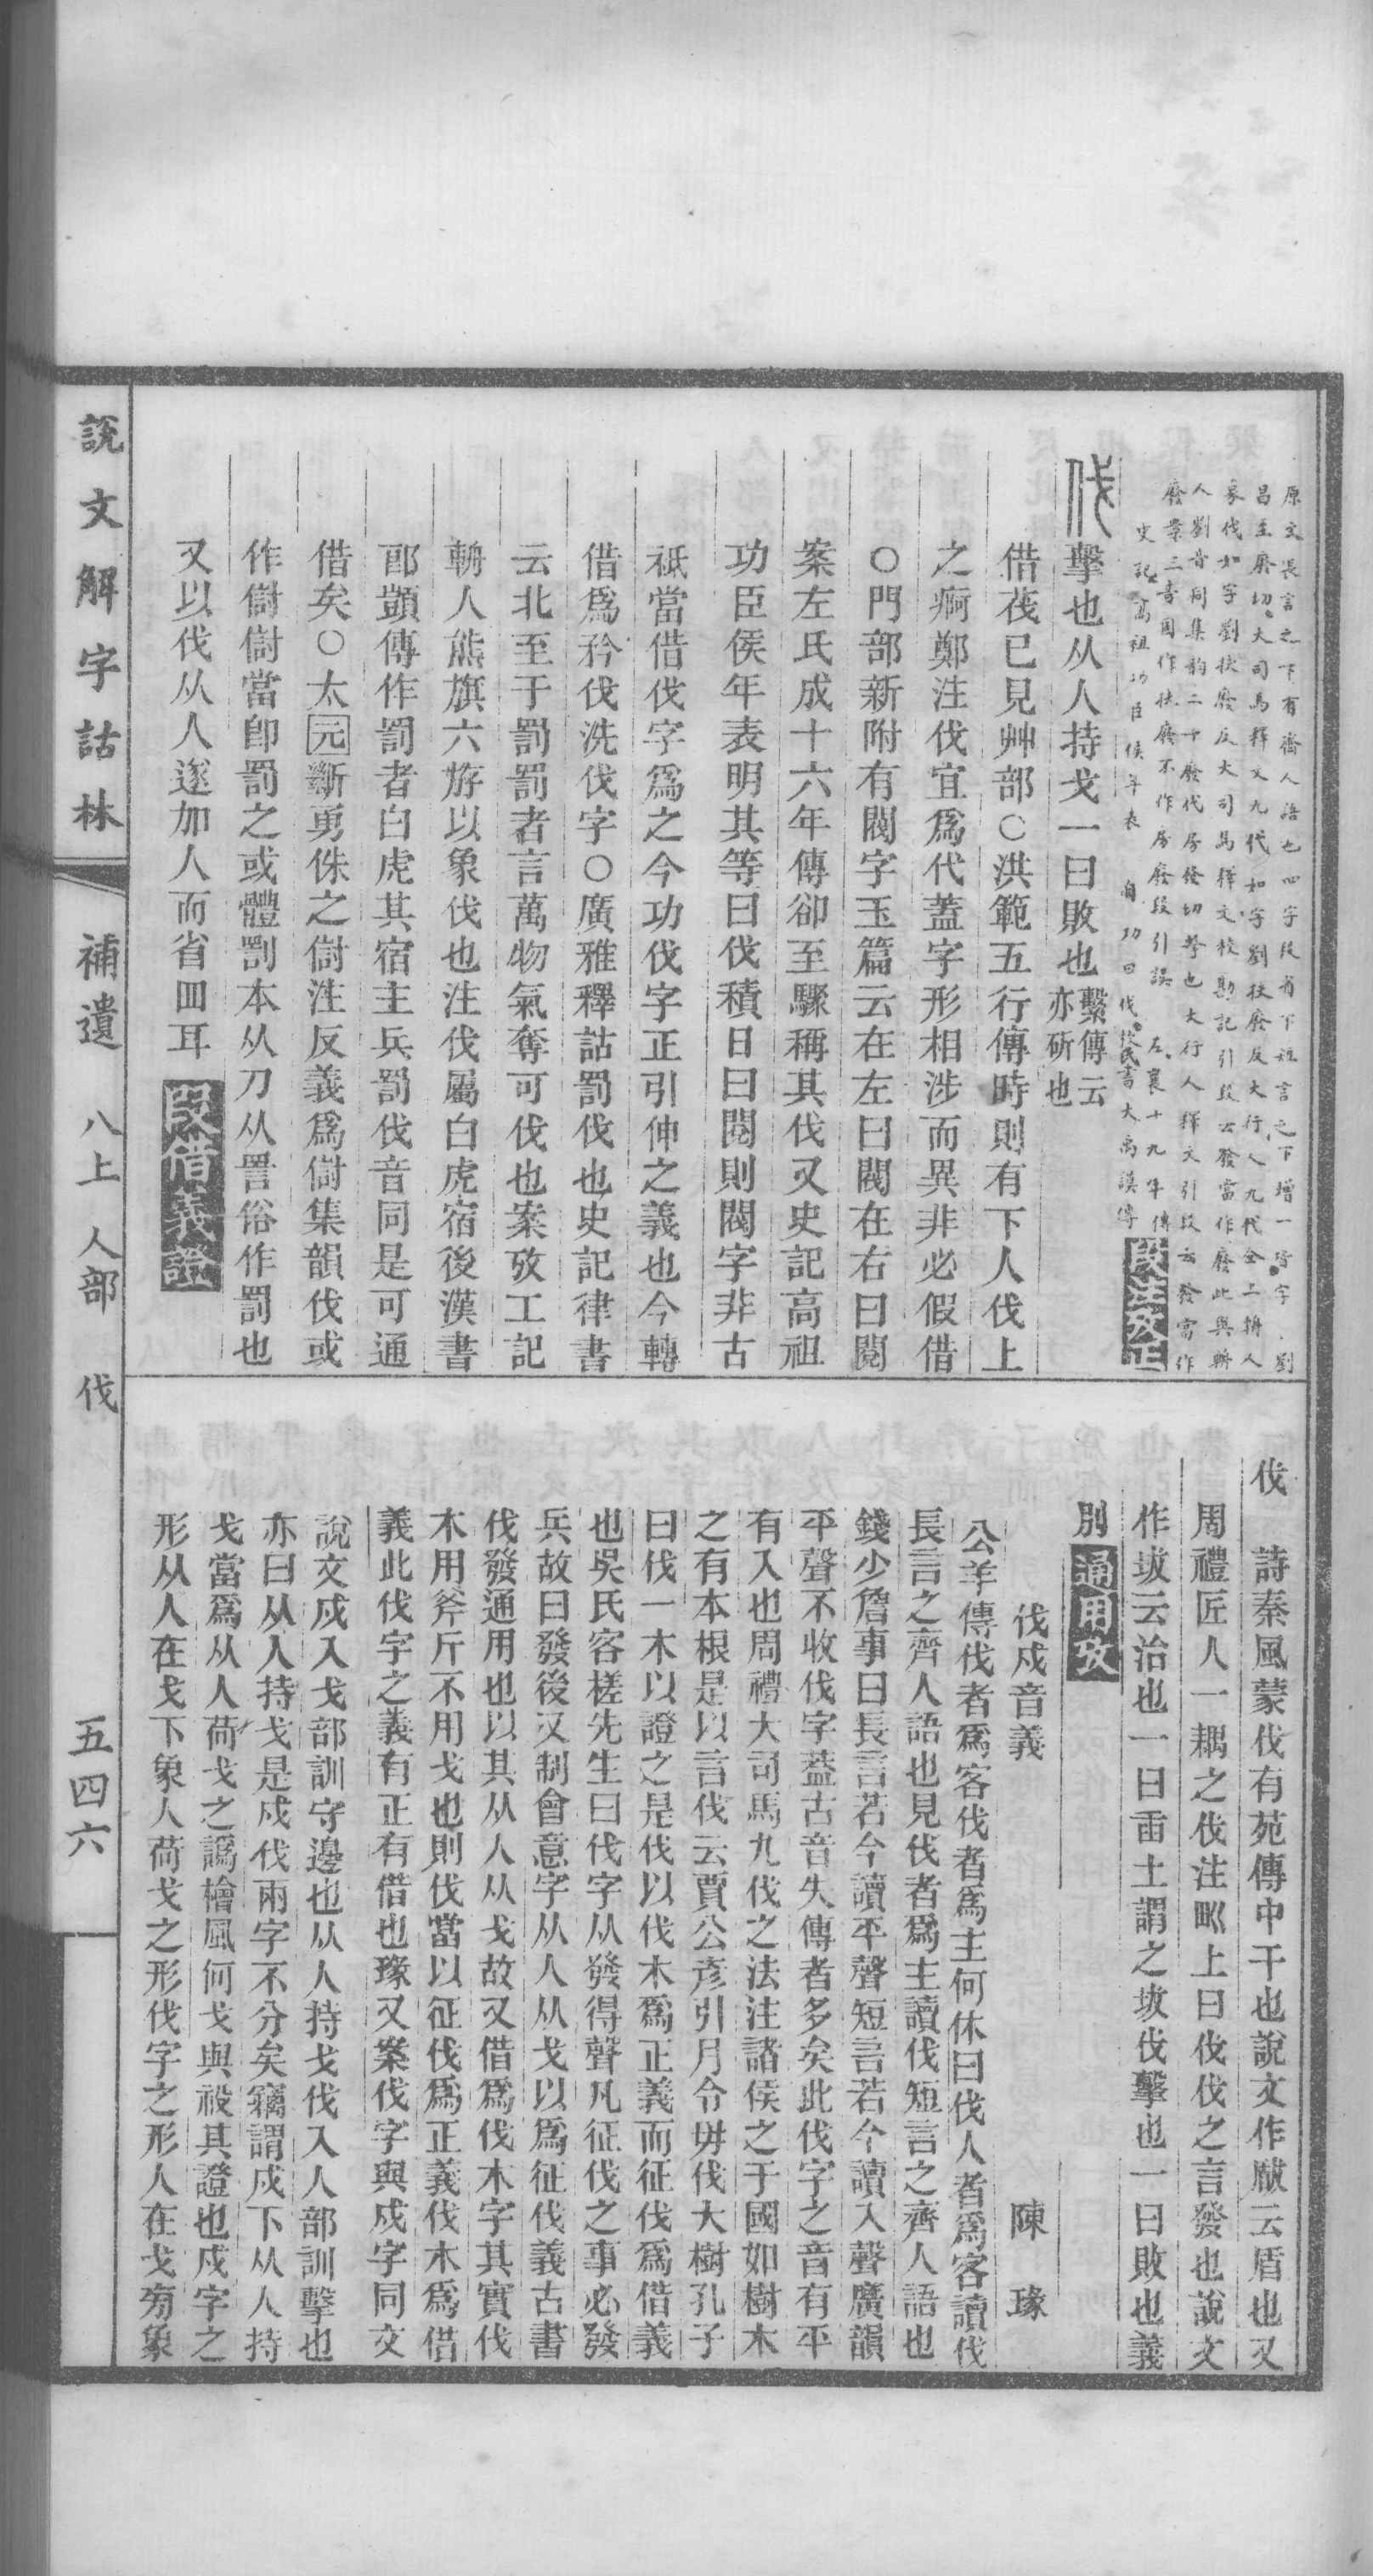 原文長言之下有齊人語也四字段省下短言之下增一皆字 劉
昌五廢切大司馬釋文九伐如字劉扶廢反大行人九伐全二輈人
象伐如字劉扶廢反大司馬釋文校勘記引段云發當作廢此與輈
人劉音同集韵二十廢伐房發切擊也大行人釋文引段云發當作
廢業三書因作扶廢不作房廢段引誤 左襄十九年傳
史記高祖功臣侯年表 自功曰伐 枚氏書大禹謨傳 段注攷正
伐 擊也从人持戈一曰敗也 繫傳云亦斫也
借茷已見艸部○洪範五行傳時則有下人伐上
之痾鄭注伐宜爲代蓋字形相涉而異非必假借
○門部新附有閥字玉篇云在左曰閥在右曰閱
案左氏成十六年傳卻至驟稱其伐又史記高祖
功臣侯年表明其等曰伐積日曰閱則閥字非古
祇當借伐字爲之今功伐字正引伸之義也今轉
借爲矜伐洗伐字○廣雅釋詁罰伐也史記律書
云北至于罰罰者言萬物氣奪可伐也案攷工記
輈人熊旗六斿以象伐也注伐屬白虎宿後漢書
郎顗傳作罰者白虎其宿主兵罰伐音同是可通
借矣○太元斷勇侏之㑯注反義爲㑯集韻伐或
作㑯㑯當卽罰之或體罰本从刀从詈俗作罰也
又以伐从人遂加人而省罒耳 叚借義證
伐 詩秦風蒙伐有苑傳中干也說文作瞂云盾也又
周禮匠人一耦之伐注畎上曰伐伐之言發也說文
作坺云治也一曰臿土謂之坺伐擊也一曰敗也義
別 通用攷
伐戍音義 陳瑑
公羊傳伐者爲客伐者爲主何休曰伐人者爲客讀伐
長言之齊人語也見伐者爲主讀伐短言之齊人語也
錢少詹事曰長言若今讀平聲短言若今讀入聲廣韻
平聲不收伐字葢古音失傳者多矣此伐字之音有平
有入也周禮大司馬九伐之法注諸侯之于國如樹木
之有本根是以言伐云賈公彥引月令毋伐大樹孔子
曰伐一木以證之是伐以伐木爲正義而征伐爲借義
也吳氏客槎先生曰伐字从發得聲凡征伐之事必發
兵故曰發後又制會意字从人从戈以爲征伐義古書
伐發通用也以其从人从戈故又借爲伐木字其實伐
木用斧斤不用戈也則伐當以征伐爲正義伐木爲借
義此伐字之義有正有借也瑑又案伐字與戍字同文
說文戍入戈部訓守邊也从人持戈伐入人部訓擊也
亦曰从人持戈是戍伐兩字不分矣竊謂戍下从人持
戈當爲从人荷戈之譌檜風何戈與祋其證也戍字之
形从人在戈下象人荷戈之形伐字之形人在戈旁象
說文解字詁林 補遺 八上 人部 伐 五四六